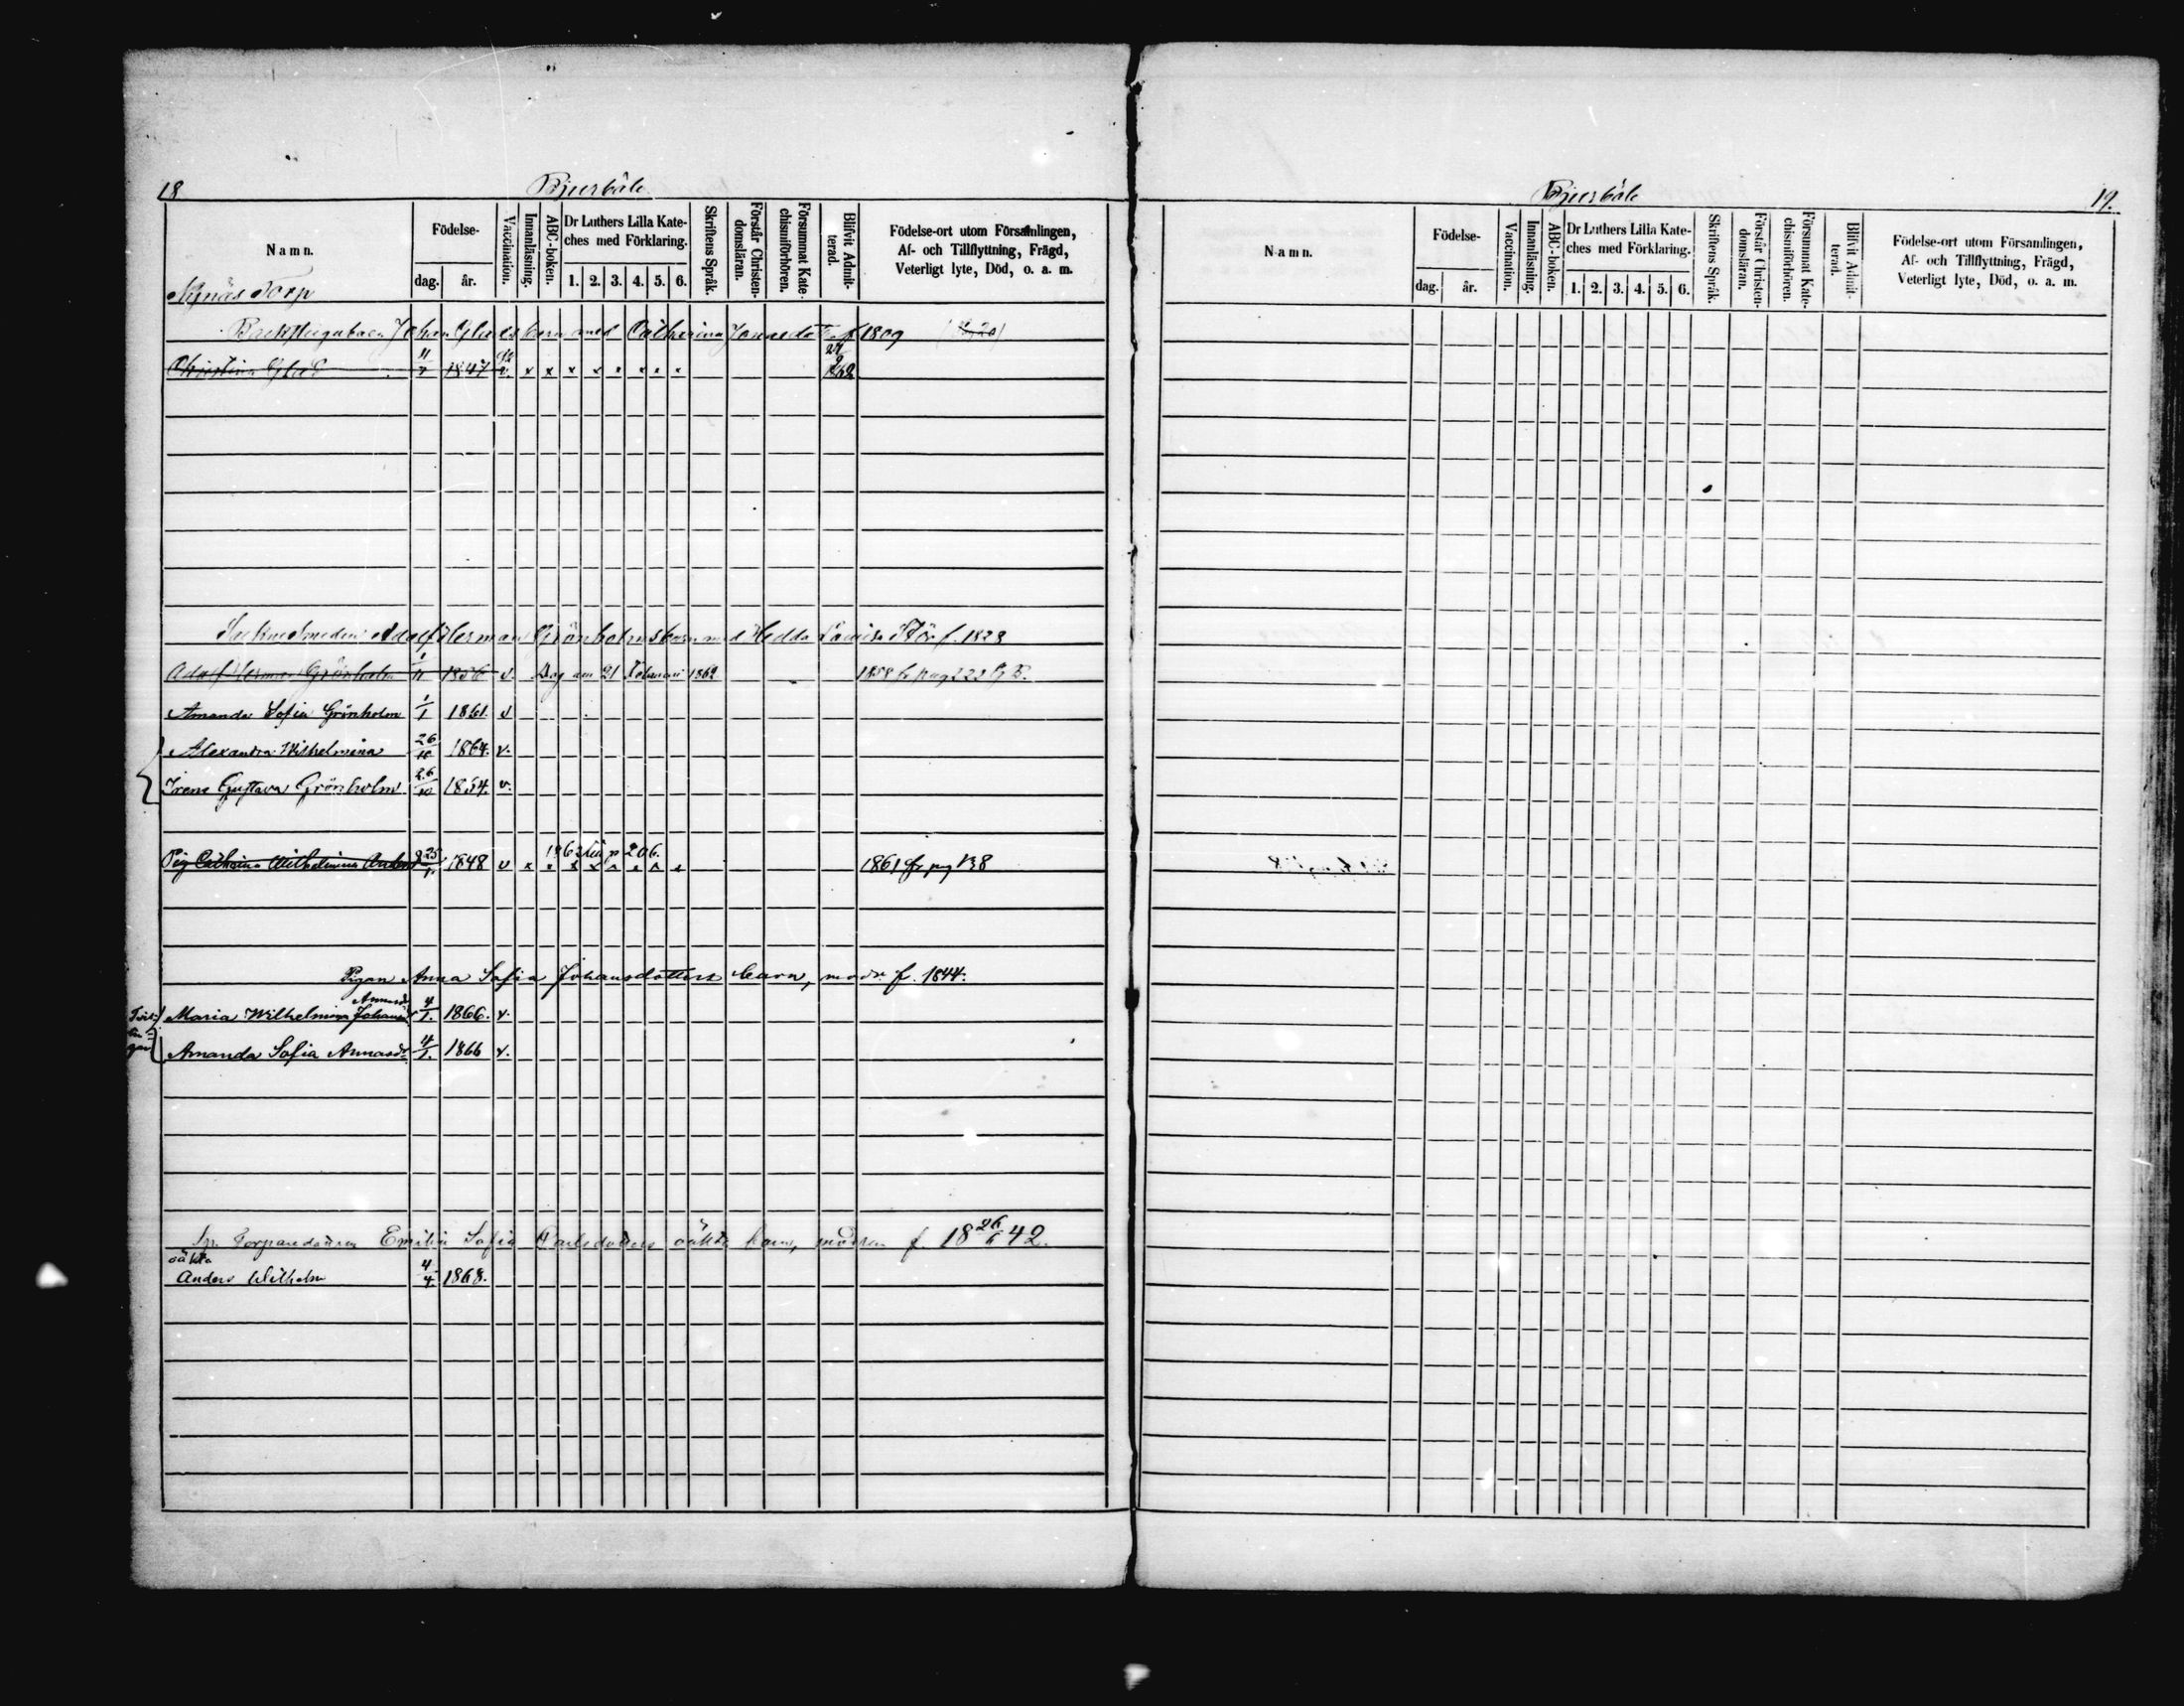 18
Bjurböle
Namn.
Födelse-
dag.
år.
Vaccination.
Innanläsning.
ABC-boken.
Dr Luthers Lilla Kate-
ches med Förklaring.
1. 2. 3. 4. 5. 6.
Skriftens Språk.
Förstår Christen-
domsläran.
Försummat Kate-
chismiförhören.
Blifvit Admit-
terad.
Födelse-ort utom Församlingen,
Af- och Tillflyttning, Frägd,
Veterligt lyte, Död, o. a. m.
Nynäs Torp
Johan Glads barn med Catharina f 1809
Christina Glad 11 1847 v. x x x x x x x x
Adolf Herman Grönholms barn med Hedda Lovisa f. 1828
Adolf Herman Grönholm 1 1856 v. Dog den 21 Februari 1862 1858 fr pag 222
Amanda Sofia Grönholm 1/1 1861. v
Alexandra Wilhelmina 26/10 1864. v.
Irene Gustava Grönholm 26/10 1864. v.
1862 p 206.
Pig Catharina Wilhelmina 25 1848 v x x x x x x x x 1861 fr pag 138
Pigan Anna Sofia Johansdotters barn, modr f. 1844.
Annasdr
Maria Wilhelmina 4/1. 1866. v.
Amanda Sofia Annasdr 4/1. 1866 v.
Emilia Sofia Carlsdotters oäkta barn, modren f. 18 26/6 42.
oäkta
Anders Wilhelm 4/4 1868.
Bjurböle
19.
Namn.
Födelse-
dag.
år.
Vaccination.
Innanläsning.
ABC-boken.
Dr Luthers Lilla Kate-
ches med Förklaring.
1. 2. 3. 4. 5. 6.
Skriftens Språk.
Förstår Christen-
domsläran.
Försummat Kate-
chismiförhören.
Blifvit Admit-
terad.
Födelse-ort utom Församlingen,
Af- och Tillflyttning, Frägd,
Veterligt lyte, Död, o. a. m.